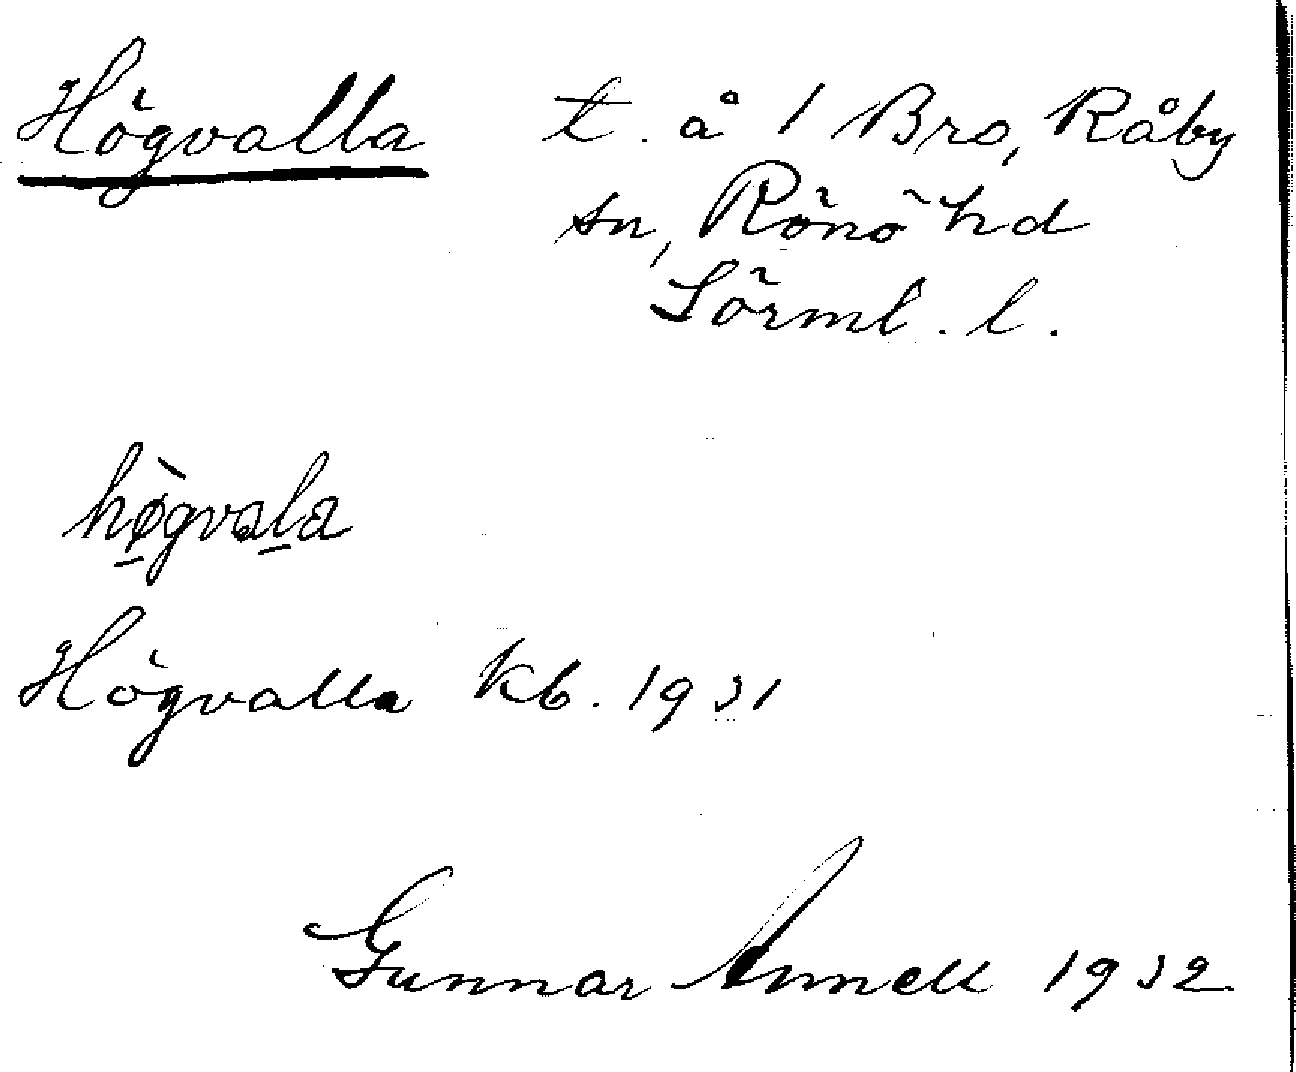 Högvalla t. å 1 Bro, Råby
sn, Rönö hd
Sörml. l.
hø̀gvala
Högvalla kb. 1931
Gunnar Annell 1932